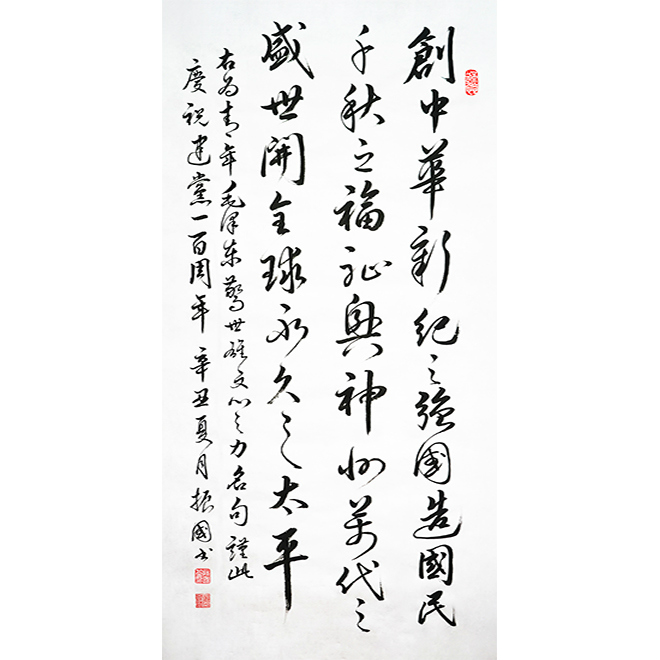 創中華新紀之强國造國民
千秋之福祉興神州萬代之
盛世開全球永久之太平
右為青年毛澤東驚世雄文心之力名句謹此
慶祝建黨一百周年辛丑夏月振國書